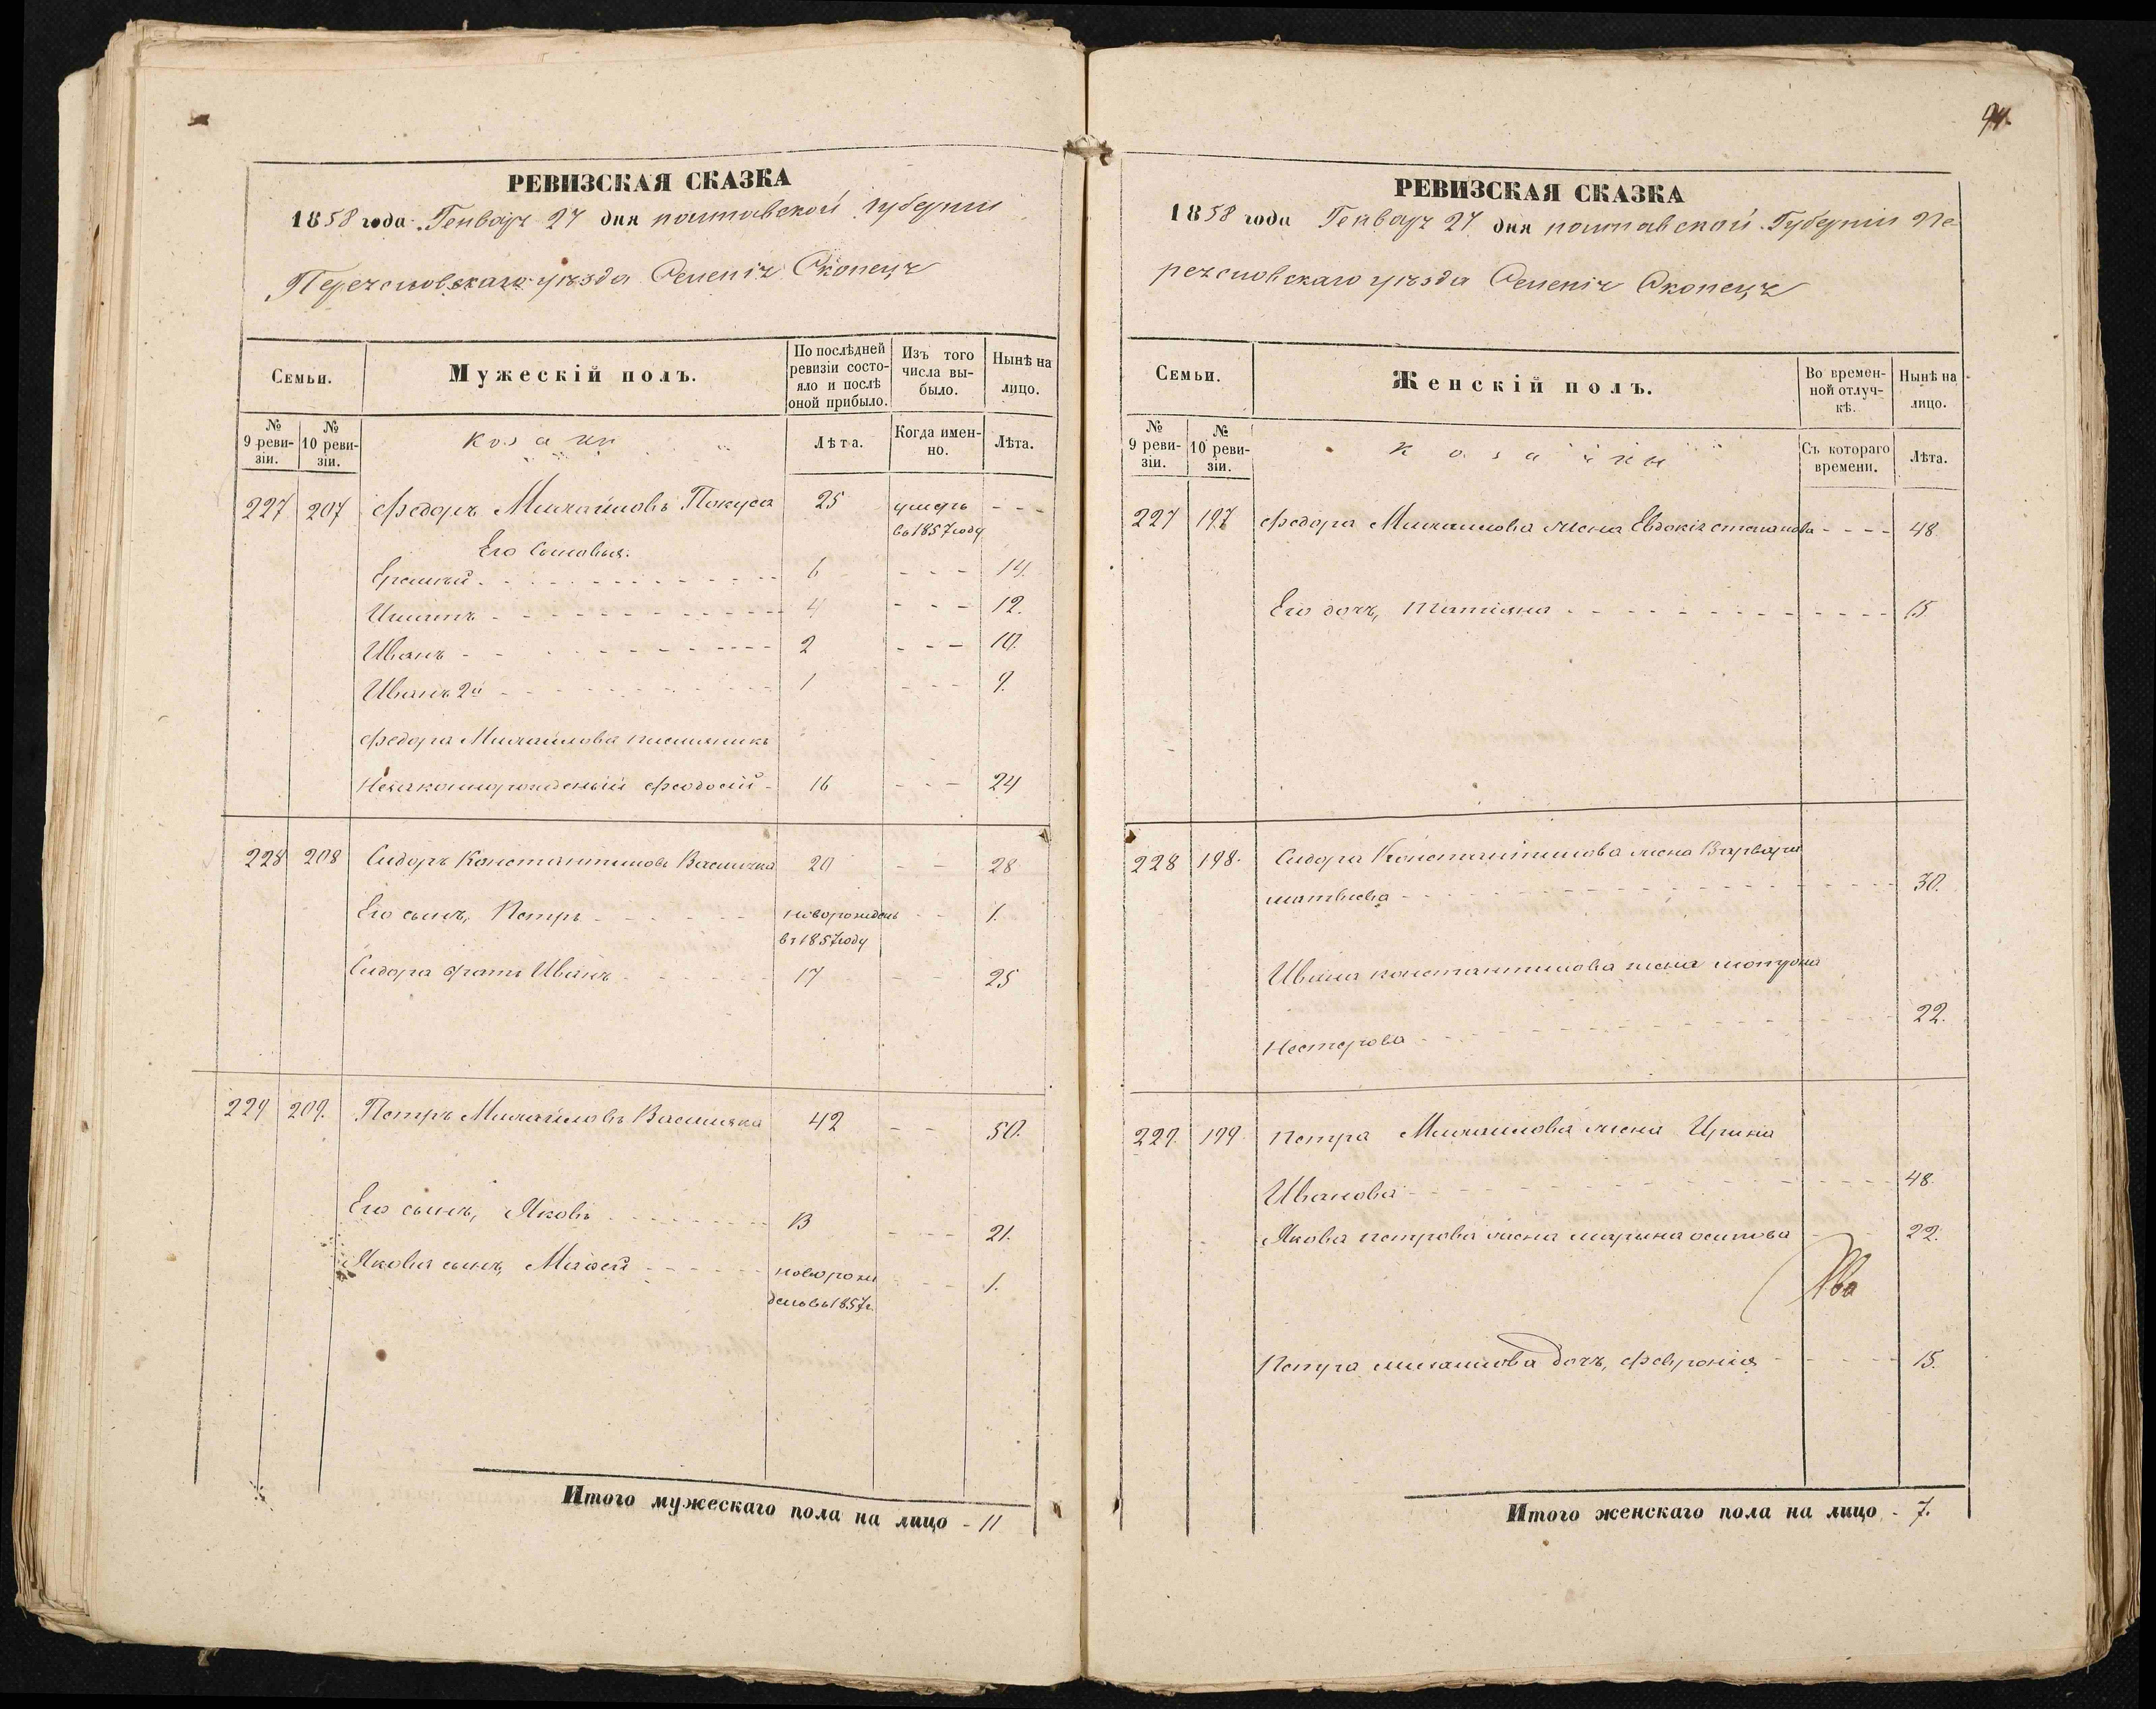 РЕВИЗСКАЯ СКАЗКА
1858 года Генваря 27 дня полтавской губернии
Переяславскаго уѣзда Селенія Скопецъ
Семьи.
Мужескій полъ.
По послѣдней ревизіи состояло и послѣ оной прибыло.
Изъ того числа выбыло.
Нынѣ на лицо.
№ 9 ревизіи.
№ 10 ревизіи.
козаки
Лѣта.
Когда именно.
Лѣта.
227 207 Федоръ Михайловъ Покуса 25 умеръ - - -
въ 1857 году
Его Сыновья.
6 - - - 14.
4 - - - 12.
Иванъ - - 2 - - - 10.
Иванъ 2й - - 1 - - - 9.
Федора Михайлова племяникъ
Незаконнорожденый Феодосій - 16 - - - 24
228 208 Сидоръ Константиновъ 20 - - 28
Его сынъ, Петръ - - новорожденъ - - 1.
въ 1857 году
Сидора братъ Иванъ - - 17 - - 25
229 209. Петръ Михайловъ 42 - - 50.
Его сынъ, Яковъ - - 13 - - - 21.
Якова сынъ, - - новорож - - - 1.
денъ въ 1857 г.
Итого мужескаго пола на лицо - 11
94.
РЕВИЗСКАЯ СКАЗКА
1858 года Генваря 27 дня полтавской Губерніи Пе-
реяславскаго уѣзда Селенія Скопецъ
Семьи.
Женскій полъ.
Во временной отлучкѣ.
Нынѣ на лицо.
№ 9 ревизіи.
№ 10 ревизіи.
козачки
Съ котораго времени.
Лѣта.
227 197 Федора Михайлова жена Евдокія степанова - - - - 48.
Его дочь, татіяна - - 15
228 198. Сидора Константинова жена Варвара
матвіева - - 30.
Ивана константинова жена мотрона
Нестерова - - 22.
229. 199. Петра Михайлова жена Ирина
Иванова - - 48.
Якова петрова жена марина осипова - - 22.
Петра михайлова дочь, Февронія - - 15.
Итого женскаго пола на лицо - 7.